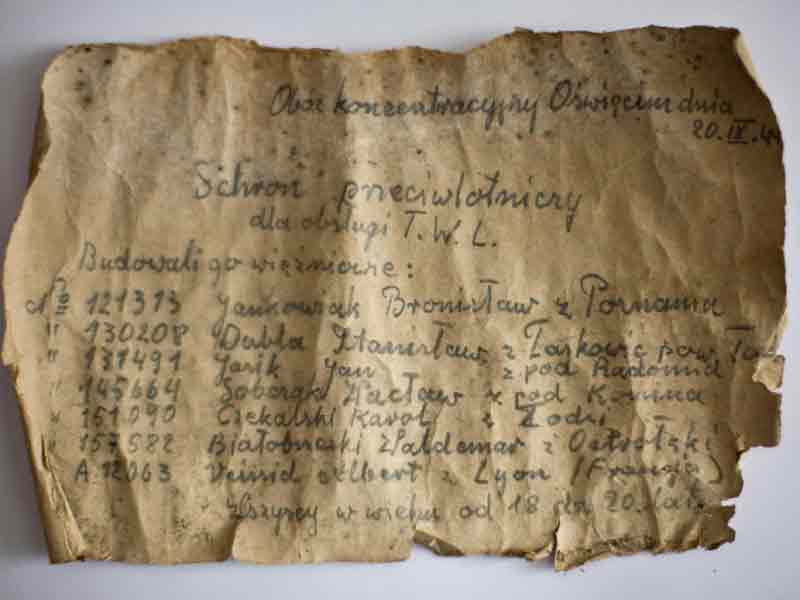 Obóz koncentracyjny Oświęcim dnia
20.IX.44
Schron przeciwlotniczy
dla obsługi T.W.L.
Budowali go więźniowie:
No 121313 Jankowiak Bronisław z Poznania
" 130208 Dubla Stanisław z Łaskowic pow. Ta
" 131491 Jasik Jan z pod Radomia
" 145664 Sobczak Wacław z pod Konina
" 151090 Czekalski Karol z Łodzi
" 157582 Białobrzeski Waldemar z Ostrołęki
A 12063 Veissid Albert z Lyon (Francja)
Wszyscy w wieku od 18 do 20. lat